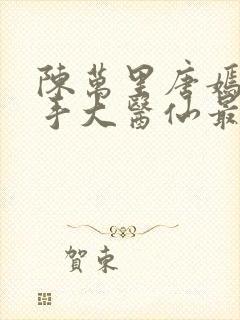 陳萬里唐嫣
手大醫仙最
賀東